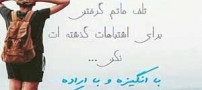 تلف ماتم گرفتن
برای اشتباهات گذشته ات
نکن ...
با انگیزه و با اراده